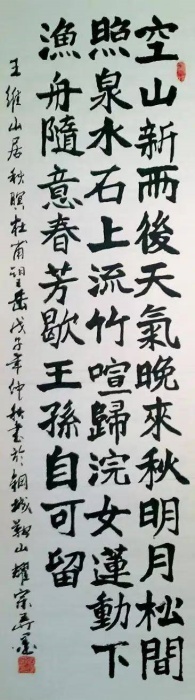 空山新雨後天氣晚來秋明月松間
照泉水石上流竹喧歸浣女蓮動下
漁舟隨意春芳歇王孫自可留
王維山居秋暝杜甫望岳戊子年仲秋書於鋼城鞍山耀宗弄墨